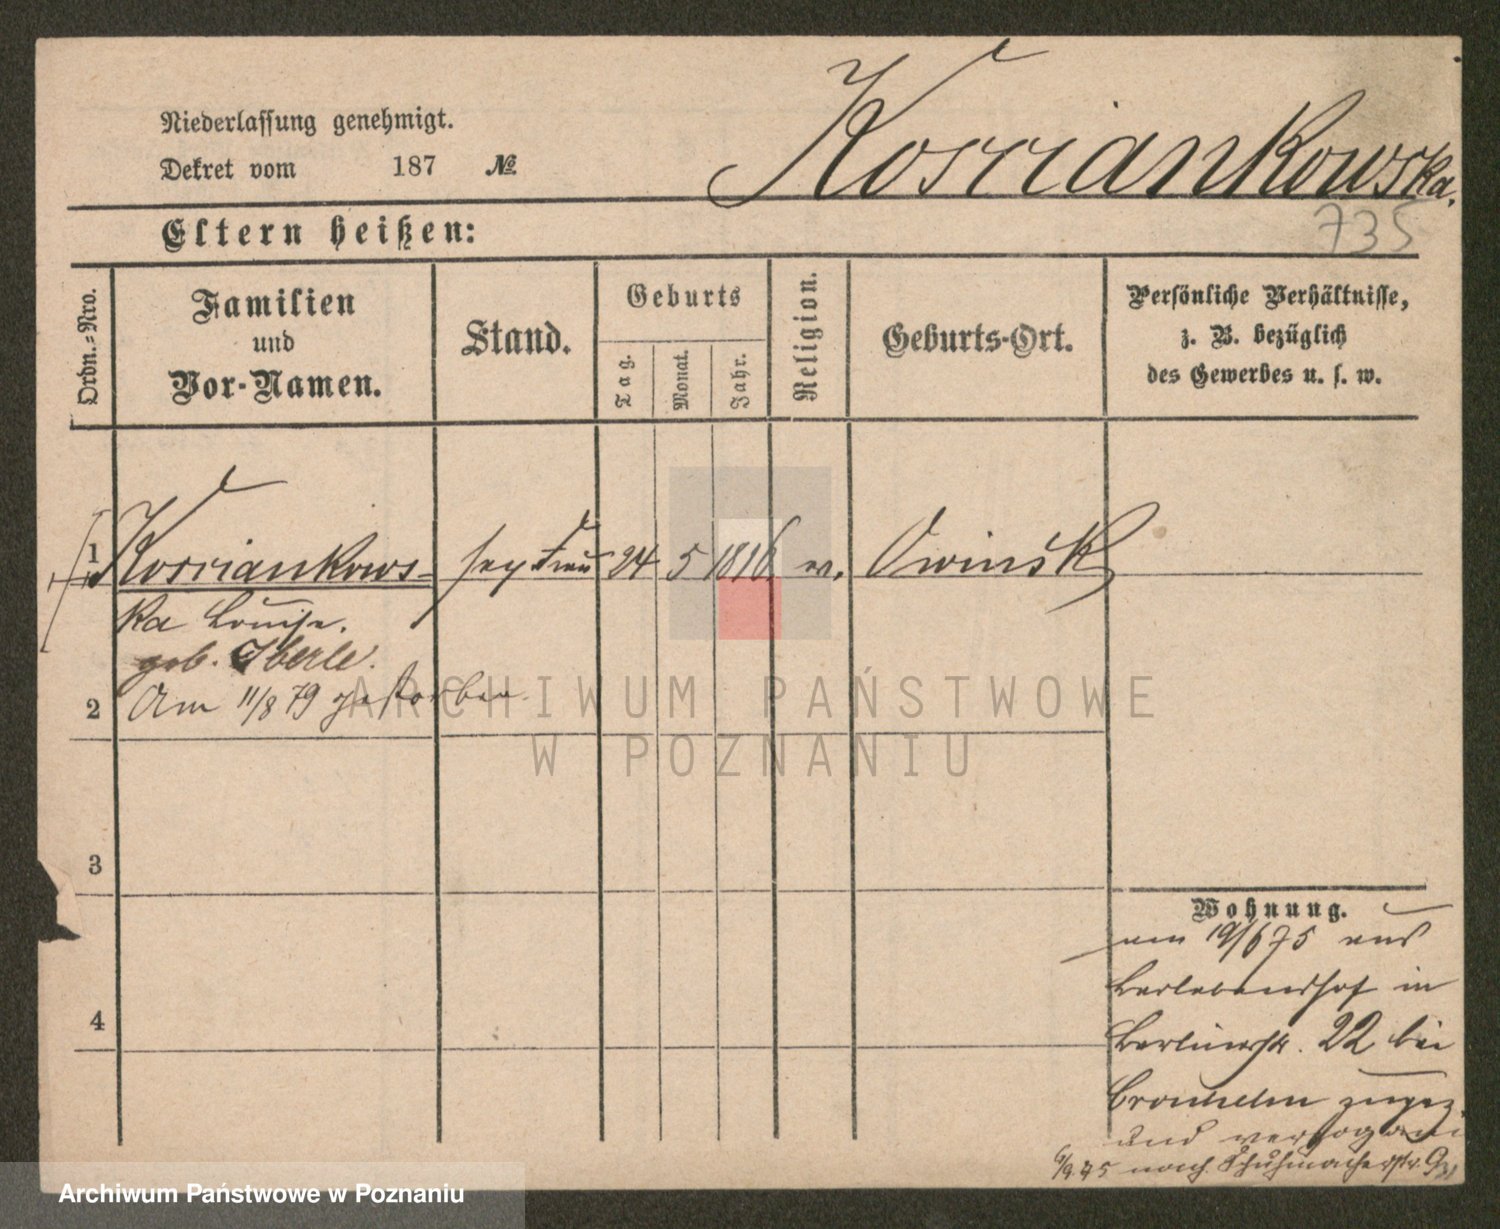 Kosciankowska.
Niederlassung genehmigt.
Dekret vom 187 №
735
Eltern heißen:
Ordn.-Nro.
Familien
und
Vor-Namen.
Stand.
Geburts
Tag.
Monat.
Jahr.
Religion.
Geburts-Ort.
Persönliche Verhältnisse,
z. B. bezüglich
des Gewerbes u. s. w.
1 Kosciankows- 24 5 1816
ka Louise.
geb. Iberle.
2 Am 11/8 79 gestorben
ARCHIWUM PAŃSTWOWE
W POZNANIU
3
Wohnung.
am 19/6 75 aus
in
4
Berlinerstr. 22 bei
zugez.
und verzogen
6/9 75 nach Schuhmacherstr.
Archiwum Państwowe w Poznaniu